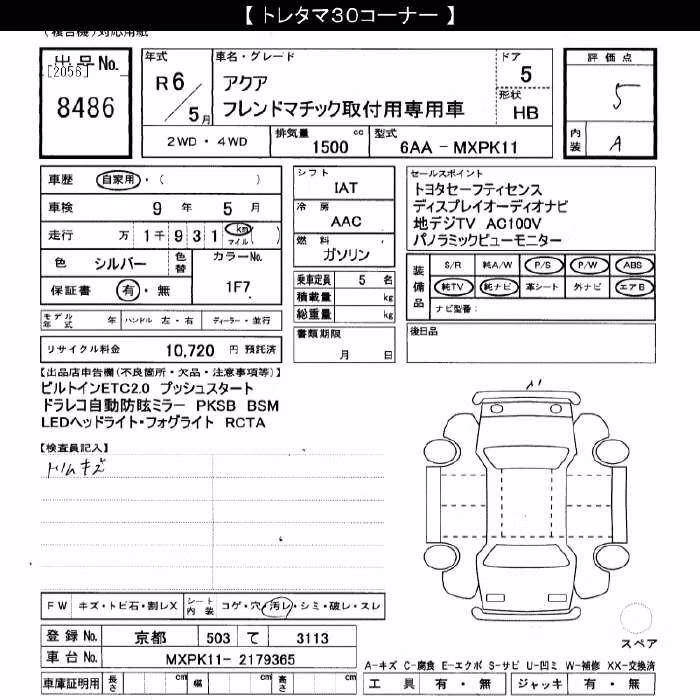 【 トレタマ30コーナー 】
(複合機)対応用紙
出品No.
[2056]
8486
年式
R6/5月
車名・グレード
アクア
フレンドマチック取付用専用車
ドア
5
形状
HB
2WD・4WD
排気量 1500 cc
型式 6AA - MXPK11
評価点
5
内装
A
車歴 自家用・( )
車検 9年 5月
走行 万 1千931 km マイル ( )
色 シルバー 色替 カラーNo.
保証書 有・無 1F7
シフト
IAT
冷房
AAC
燃料
ガソリン
乗車定員 5 名
積載量 kg
総重量 kg
書類期限
月 日
セールスポイント
トヨタセーフティセンス
ディスプレイオーディオナビ
地デジTV AC100V
パノラミックビューモニター
装備品
S/R 純A/W P/S P/W ABS
純TV 純ナビ 革シート 外ナビ エアB
ナビ型番:
後日品
モデル年式 年 ハンドル 左・右 ディーラー・並行
リサイクル料金 10,720 円 預託済
【出品店申告欄(不良箇所・欠品・注意事項等)】
ビルトインETC2.0 プッシュスタート
ドラレコ自動防眩ミラー PKSB BSM
LEDヘッドライト・フォグライト RCTA
【検査員記入】
トリムキズ
FW キズ・トビ石・割レX シート内装 コゲ・穴・汚レ・シミ・破レ・スレ
登録No. 京都 503 て 3113
車台No. MXPK11- 2179365
車庫証明用 長さ cm 幅 cm 高さ cm
A
スペア
A-キズ C-腐食 E-エクボ S-サビ U-凹ミ W-補修 XX-交換済
工具 有・無 ジャッキ 有・無